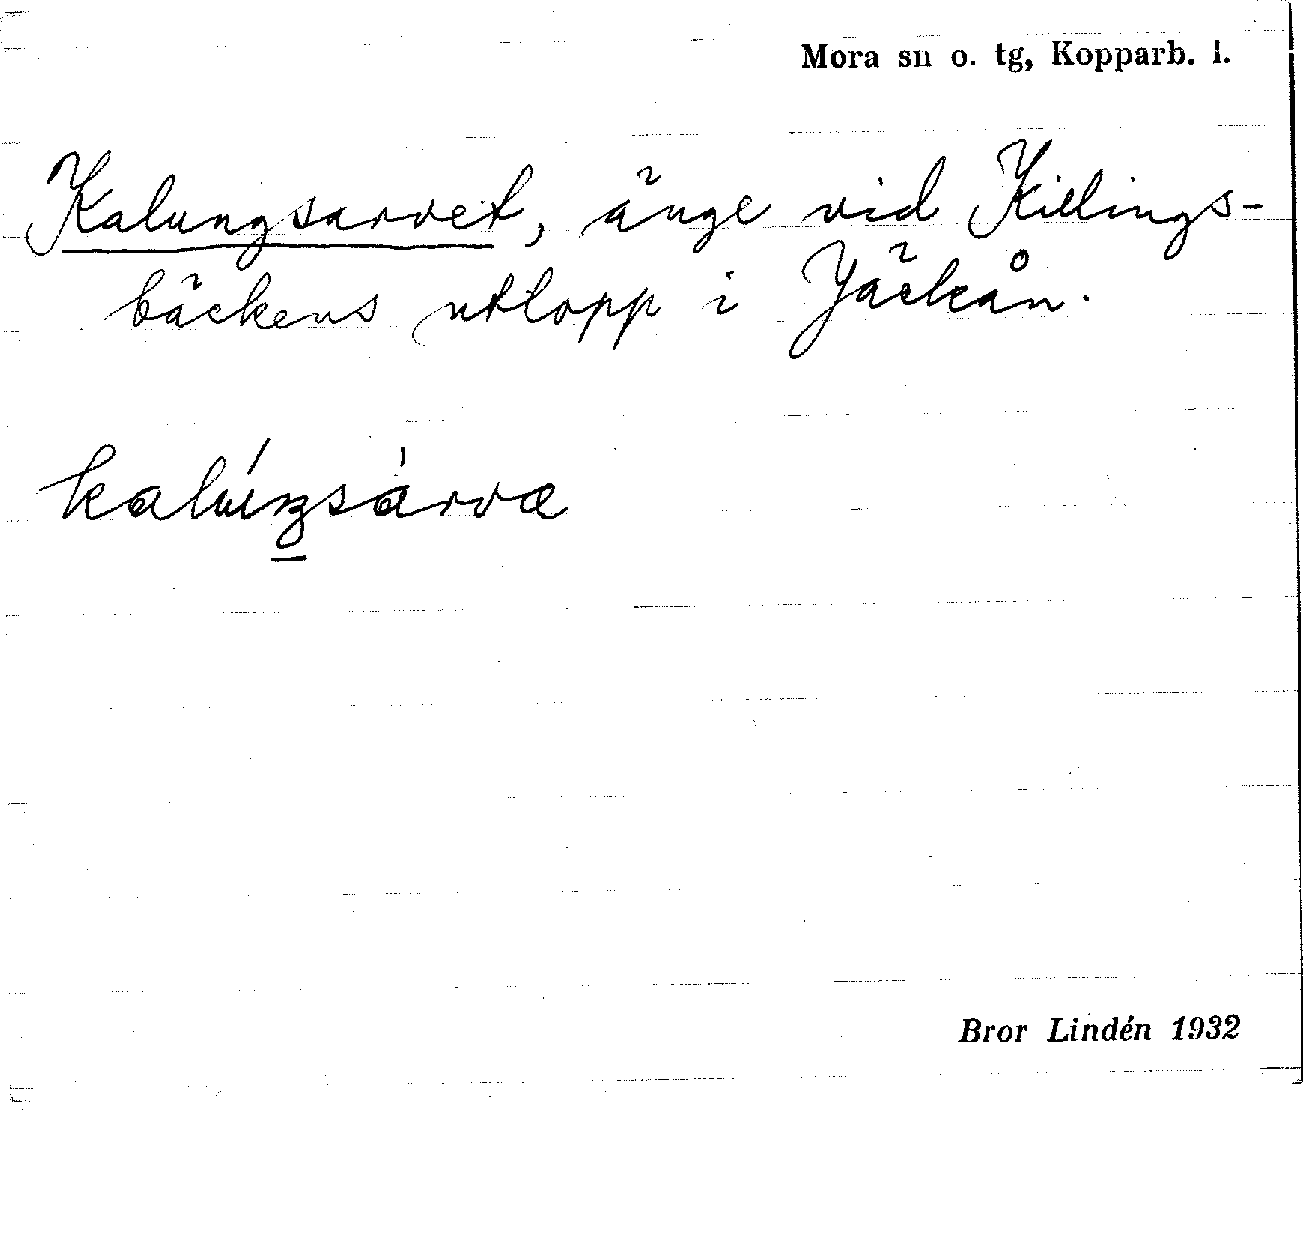 Mora sn o. tg, Kopparb. l.
Kalungsarvet, änge vid Killings-
bäckens utlopp i Jäckån.
Bror Lindén 1932